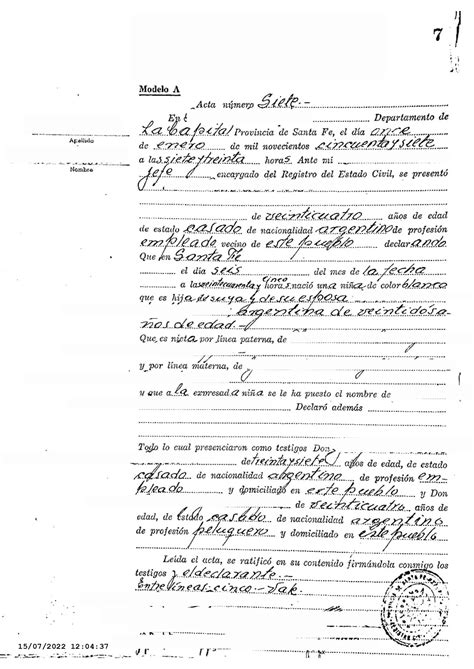 7
Modelo A
Acta número Siete.-
En Departamento de
La Capital Provincia de Santa Fe, el día once
de enero de mil novecientos cincuenta y siete
Apellido
a las siete y treinta horas. Ante mi
Nombre
Jefe encargado del Registro del Estado Civil, se presentó
de veinticuatro años de edad
de estado casado de nacionalidad argentino de profesión
empleado vecino de este pueblo declarando
Que en Santa Fe
el día seis del mes de la fecha
cinco
a las veinte cuenta y horas nació una niña de color blanca
que es hija suya y de su esposa
argentina de veintidós a-
ños de edad.-
Que es nieta por línea paterna, de
y por línea materna, de
y que a la expresada niña se le ha puesto el nombre de
Declaró además
Todo lo cual presenciaron como testigos Don
de treinta y siete años de edad, de estado
casado de nacionalidad argentino de profesión em-
pleado y domiciliado en este pueblo y Don
de veinticuatro años de
edad, de estado casado de nacionalidad argentino
de profesión peluquero y domiciliado en este pueblo
Leída el acta, se ratificó en su contenido firmándola conmigo los
testigos y el declarante.-
Entre líneas-cinco-Vale.
15/07/2022 12:04:37